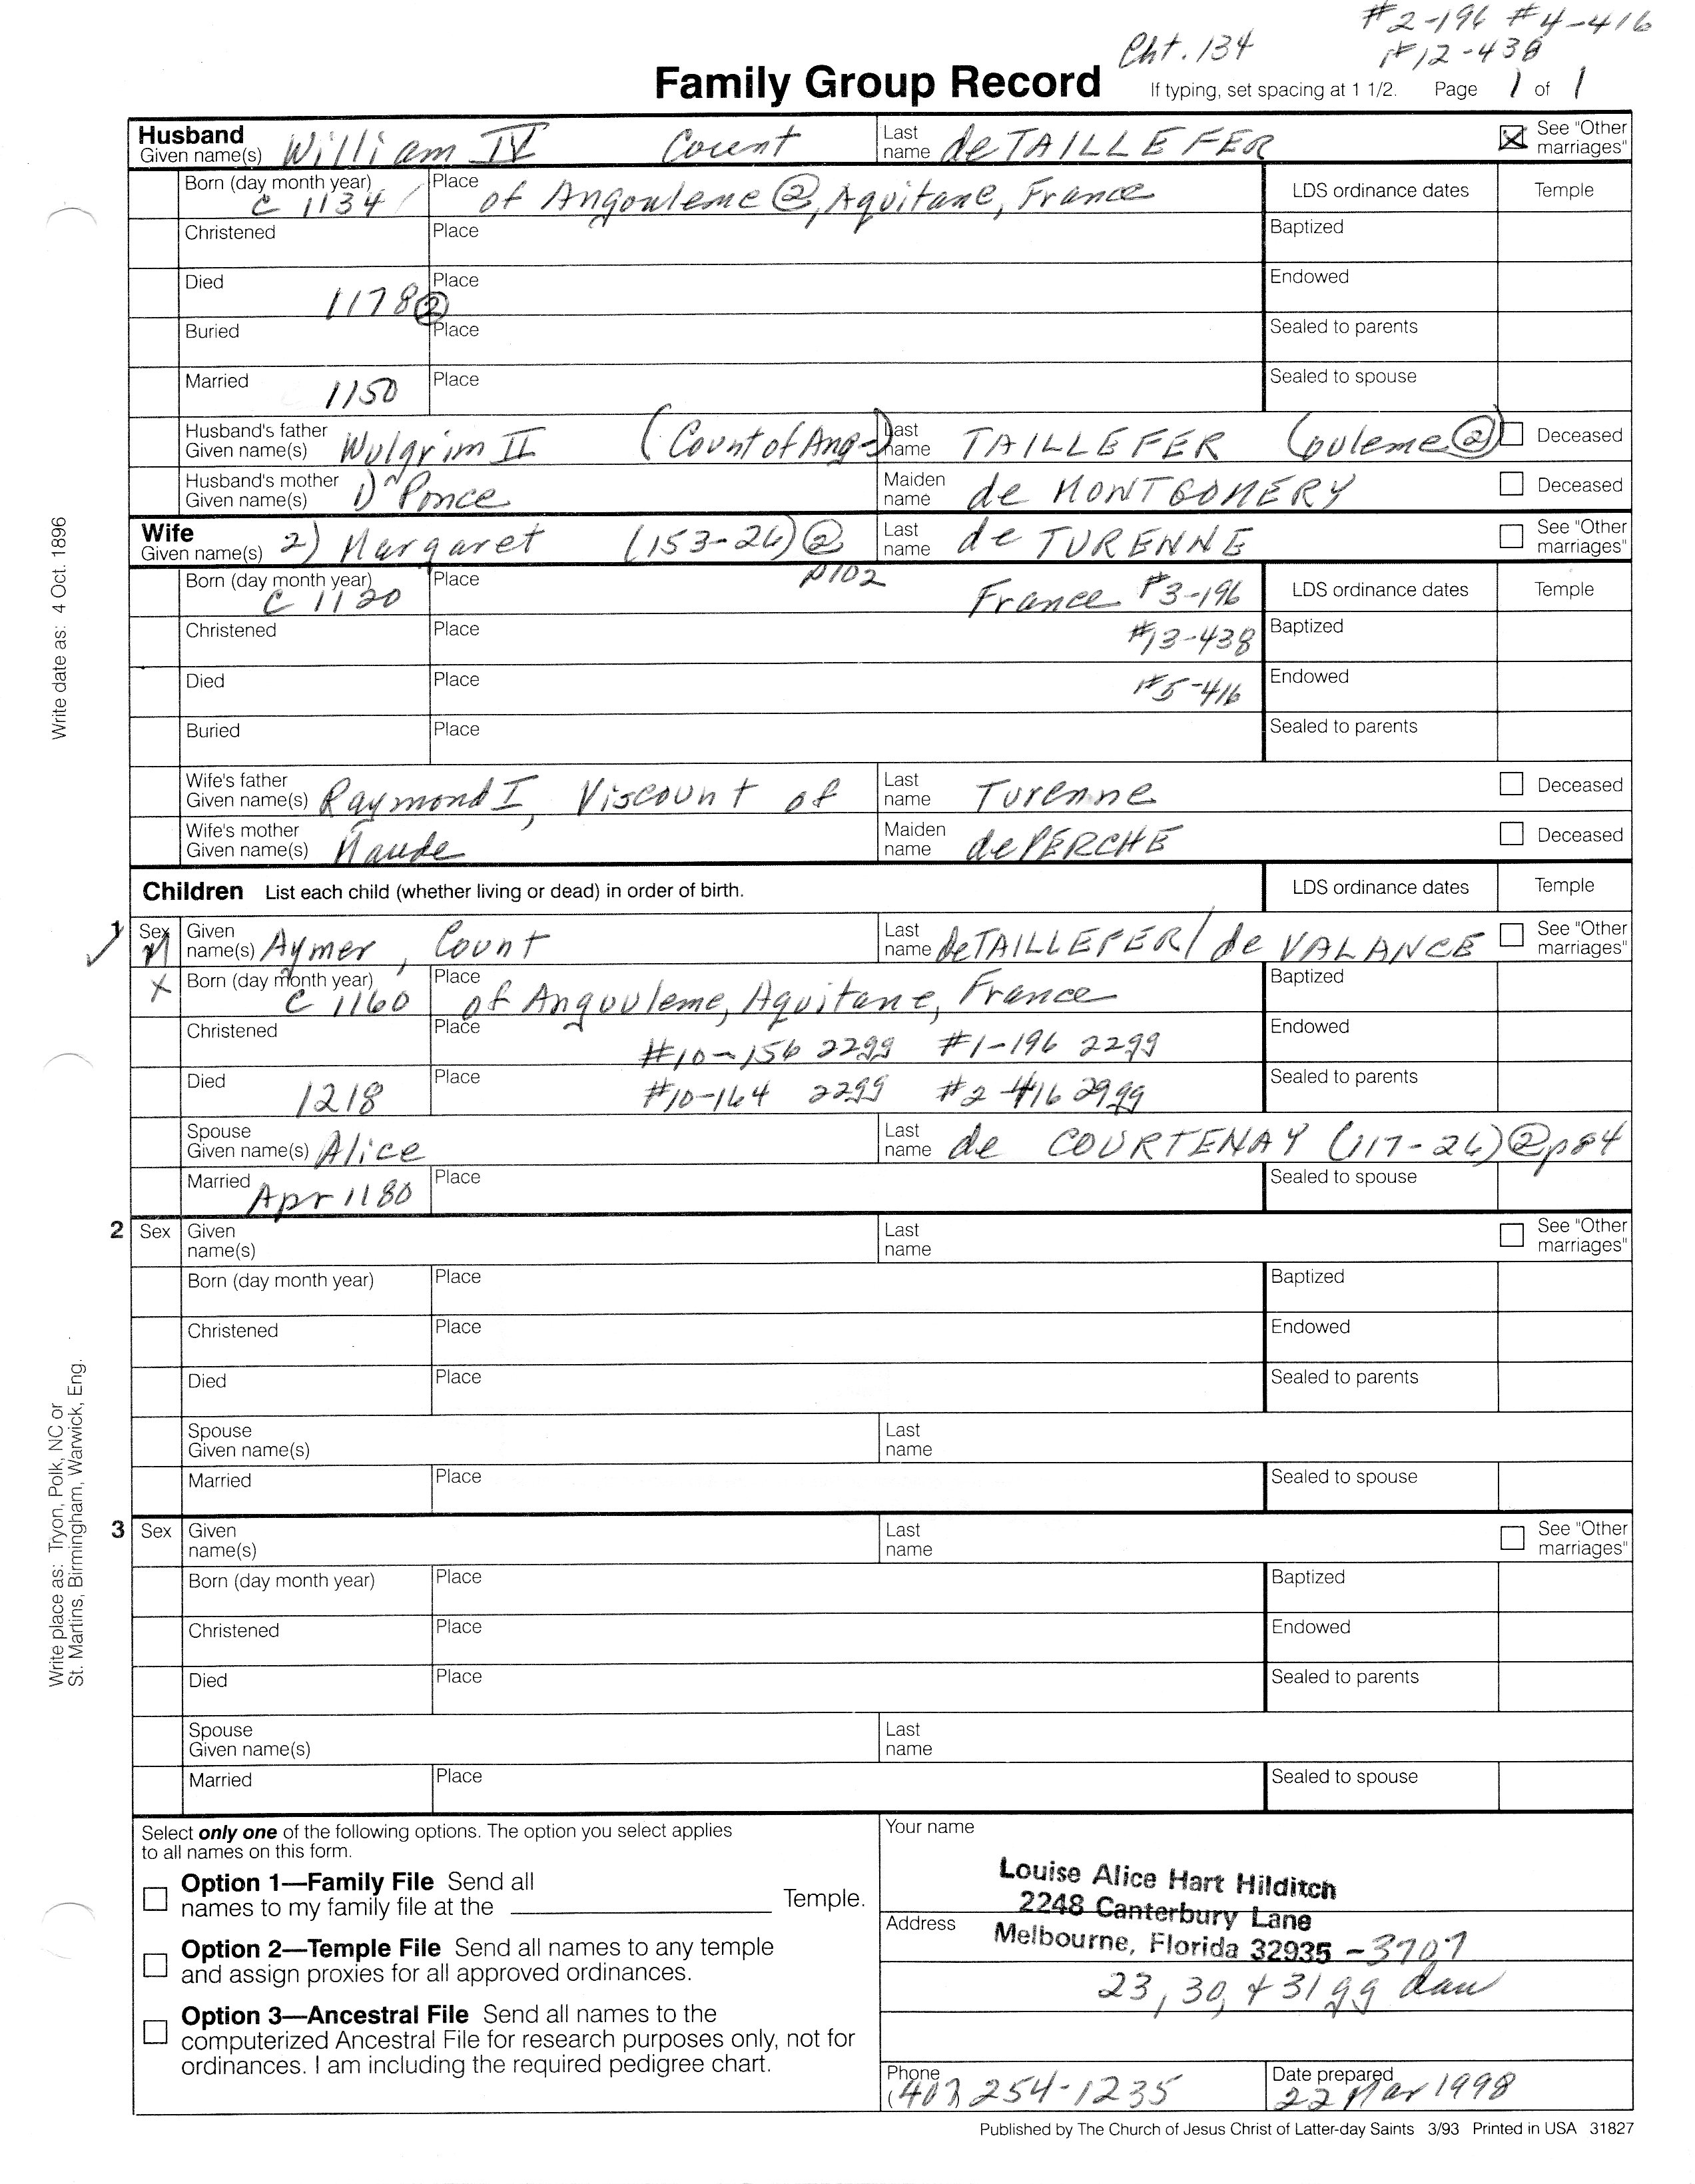 #2-196 #4-416
Cht. 134 #12-438
Family Group Record If typing, set spacing at 1 1/2. Page 1 of 1
Husband Given name(s) William IV Count Last name deTAILLEFER See "Other marriages"
Born (day month year) C 1134 Place of Angouleme ②, Aquitane, France LDS ordinance dates Temple
Christened Place Baptized
Died 1178 ② Place Endowed
Buried Place Sealed to parents
Married 1150 Place Sealed to spouse
Husband's father Given name(s) Wulgrim II (Count of Ang-) Last name TAILLEFER (ouleme ②) Deceased
Husband's mother Given name(s) 1) Ponce Maiden name de MONTGOMERY Deceased
Wife Given name(s) 2) Margaret (153-26) ② Last name de TURENNE See "Other marriages"
p102
Born (day month year) C 1120 Place France #3-196 LDS ordinance dates Temple
Christened Place #13-438 Baptized
Died Place #5-416 Endowed
Buried Place Sealed to parents
Wife's father Given name(s) Raymond I, Viscount of Last name Turenne Deceased
Wife's mother Given name(s) Maude Maiden name dePERCHE Deceased
Children List each child (whether living or dead) in order of birth. LDS ordinance dates Temple
1 Sex M Given name(s) Aymer, Count Last name deTAILLEFER/de VALANCE See "Other marriages"
X Born (day month year) C 1160 Place of Angouleme, Aquitane, France Baptized
Christened Place #10-156 22gg #1-196 22gg Endowed
Died 1218 Place #10-164 22gg #2-416 29gg Sealed to parents
Spouse Given name(s) Alice Last name de COURTENAY (117-26) ② p84
Married Apr 1180 Place Sealed to spouse
2 Sex Given name(s) Last name See "Other marriages"
Born (day month year) Place Baptized
Christened Place Endowed
Died Place Sealed to parents
Spouse Given name(s) Last name
Married Place Sealed to spouse
3 Sex Given name(s) Last name See "Other marriages"
Born (day month year) Place Baptized
Christened Place Endowed
Died Place Sealed to parents
Spouse Given name(s) Last name
Married Place Sealed to spouse
Write date as: 4 Oct. 1896
Write place as: Tryon, Polk, NC or
St. Martins, Birmingham, Warwick, Eng.
Select only one of the following options. The option you select applies
to all names on this form.
Option 1—Family File Send all
names to my family file at the Temple.
Option 2—Temple File Send all names to any temple
and assign proxies for all approved ordinances.
Option 3—Ancestral File Send all names to the
computerized Ancestral File for research purposes only, not for
ordinances. I am including the required pedigree chart.
Your name
Louise Alice Hart Hilditch
2248 Canterbury Lane
Address Melbourne, Florida 32935 -3707
23, 30, + 31 gg dau
Phone (407) 254-1235 Date prepared 22 Mar 1998
Published by The Church of Jesus Christ of Latter-day Saints 3/93 Printed in USA 31827